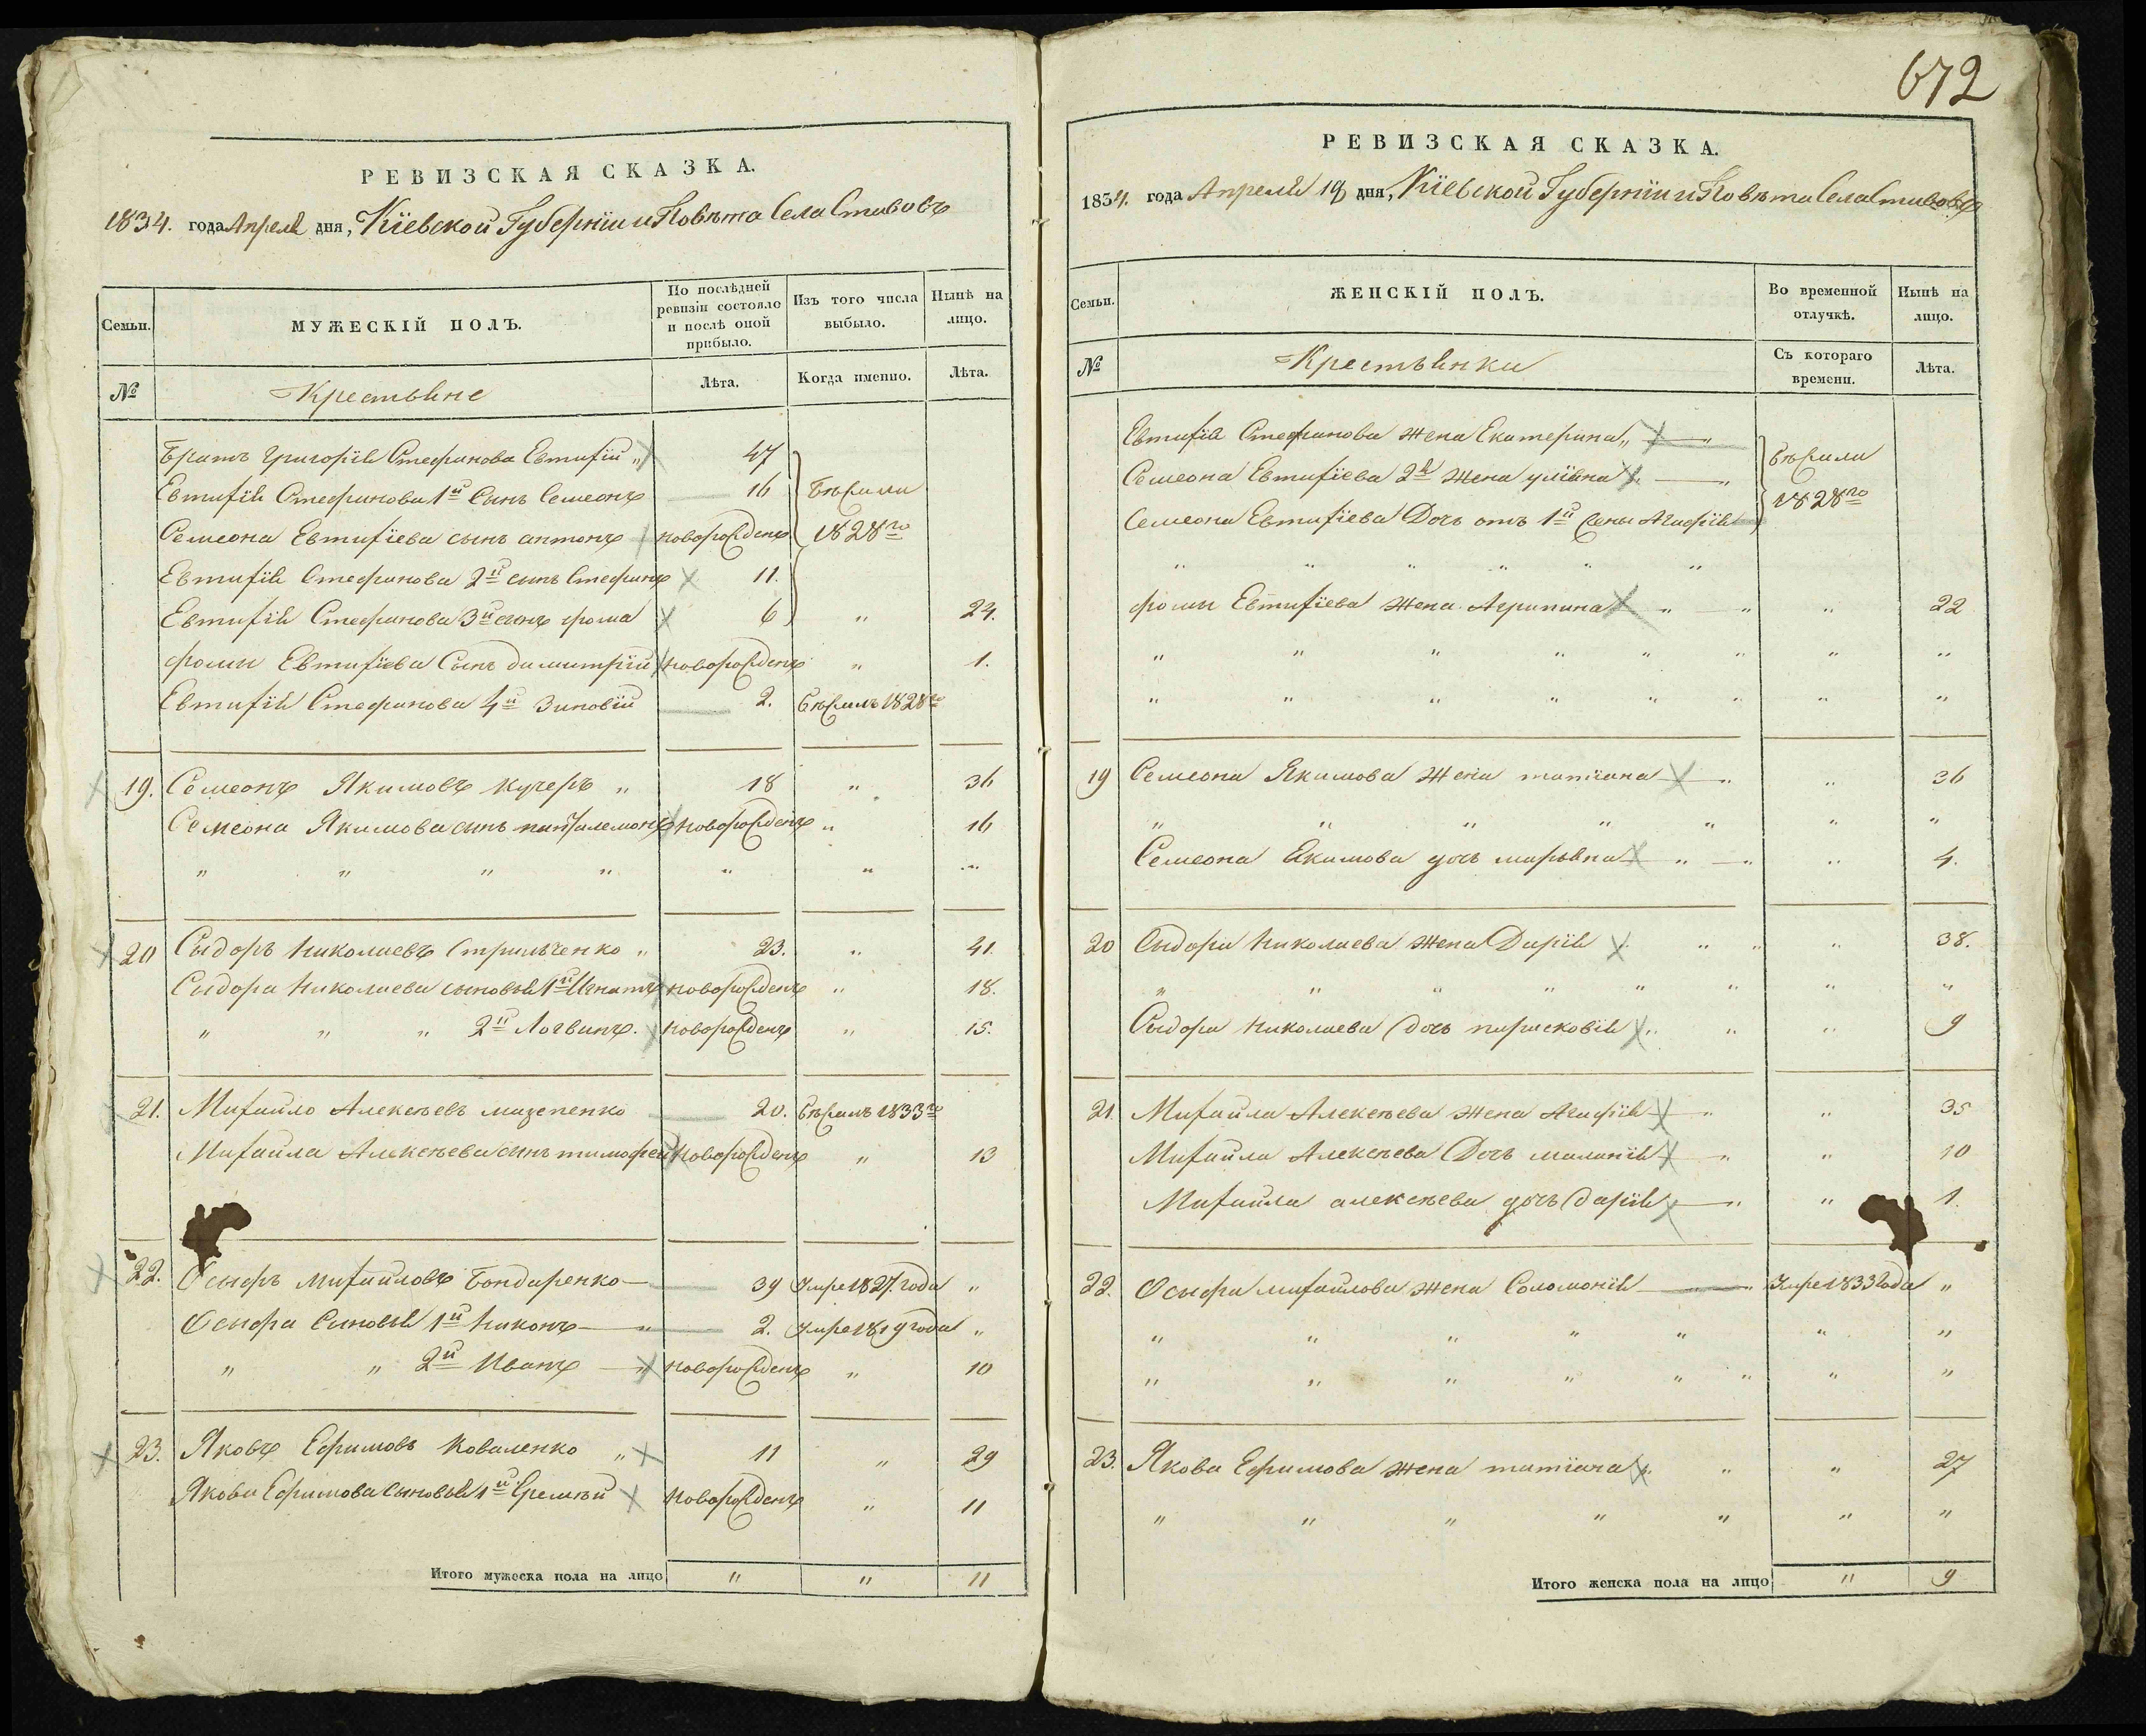 672
РЕВИЗСКАЯ СКАЗКА.
1834. года Апреля дня, Кіевской Губерніи и Повѣта Села Ставовъ
Семьи. МУЖЕСКІЙ ПОЛЪ. По послѣдней ревизіи состояло и послѣ оной прибыло. Изъ того числа выбыло. Нынѣ на лицо.
№ Крестьяне Лѣта. Когда именно. Лѣта.
Братъ Григорія Стефанова Евтихій „ 47
Евтихія Стефанова 1й Сынъ Семеонъ 16 Бѣжали
Семеона Евтихіева сынъ антонъ новорожденъ 1828го
Евтихія Стефанова 2й сынъ Стефанъ 11.
Евтихія Стефанова 3й сынъ фома 6 „ 24.
фомы Евтихіева Сынъ димитрій новорожденъ „ 1.
Евтихія Стефанова 4й Зиновій 2. бѣжалъ 1828го
19. Семеонъ Якимовъ кучеръ „ 18 „ 36
Семеона Якимова сынъ пантелемонъ новорожденъ „ 16
„ „ „ „ „ „ „
20 Сидоръ Николаевъ Стрильченко „ 23. „ 41.
Сидора Николаева сыновья 1й Игнатъ новорожденъ „ 18.
„ „ „ 2й Логвинъ. новорожденъ „ 15.
21. Михайло Алексѣевъ мазепенко 20. бѣжалъ 1833го
Михайла Алексѣева сынъ тимофей новорожденъ „ 13
22. Осыфъ Михайловъ Бондаренко 39 Умре 1827. года „
Осыфа Синовья 1й Никонъ „ 2. Умре 1819 года „
„ „ 2й Иванъ „ новорожденъ „ 10
23. Яковъ Ефимовъ Коваленко „ 11 „ 29
Якова Ефимова Сыновья 1й Еремѣй новорожденъ „ 11
Итого мужеска пола на лицо „ „ 11
РЕВИЗСКАЯ СКАЗКА.
1834. года Апреля 19 дня, Кіевской Губерніи и Повѣта Села Ставовъ
Семьи. ЖЕНСКІЙ ПОЛЪ. Во временной отлучкѣ. Нынѣ на лицо.
№ Крестьянки Съ котораго времени. Лѣта.
Евтихія Стефанова жена Екатерина „ „
Семеона Евтихіева 2я жена уліяна „ бѣжали
Семеона Евтихіева Дочь отъ 1й жены Агафія 1828го
„ „ „ „ „ „
фомы Евтихіева жена Агрипина „ „ „ 22
„ „ „ „ „ „ „ „
„ „ „ „ „ „ „ „
19 Семеона Якимова жена татіана „ „ 36
„ „ „ „ „ „ „
Семеона Якимова дочь марьяна „ „ „ 4.
20 Сидора Николаева жена Дарія „ „ „ 38.
„ „ „ „ „ „ „ „
Сидора Николаева дочь парасковія „ „ „ 9
21. Михайла Алексѣева жена Агафія „ „ 35
Михайла Алексѣева Дочь маланія „ „ 10
Михайла алексѣева дочь дарія „ „ 1.
22. Осыфа михайлова жена Соломонія „ Умре 1833 года „
„ „ „ „ „ „ „
„ „ „ „ „ „ „ „
23. Якова Ефимова жена татіана „ „ „ 27
„ „ „ „ „ „ „
Итого женска пола на лицо „ 9